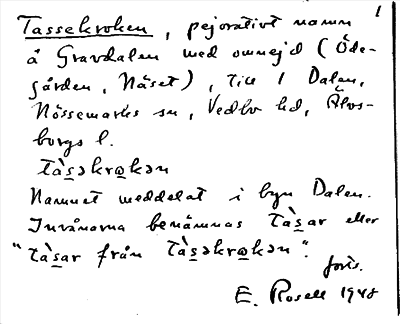 1
Tassekroken, pejorativt namn
å Gravdalen med omnejd (Öde-
gården, Näset), till 1 Dalen,
Nössemarks sn, Vedbo hd, Älvs-
borgs l.
tàs̲əkro̲kən
Namnet meddelat i byn Dalen.
Invånarna benämnas tàs̲ar eller
"tàs̲ar från tàs̲əkro̲kən".
forts.
E. Rosell 1948